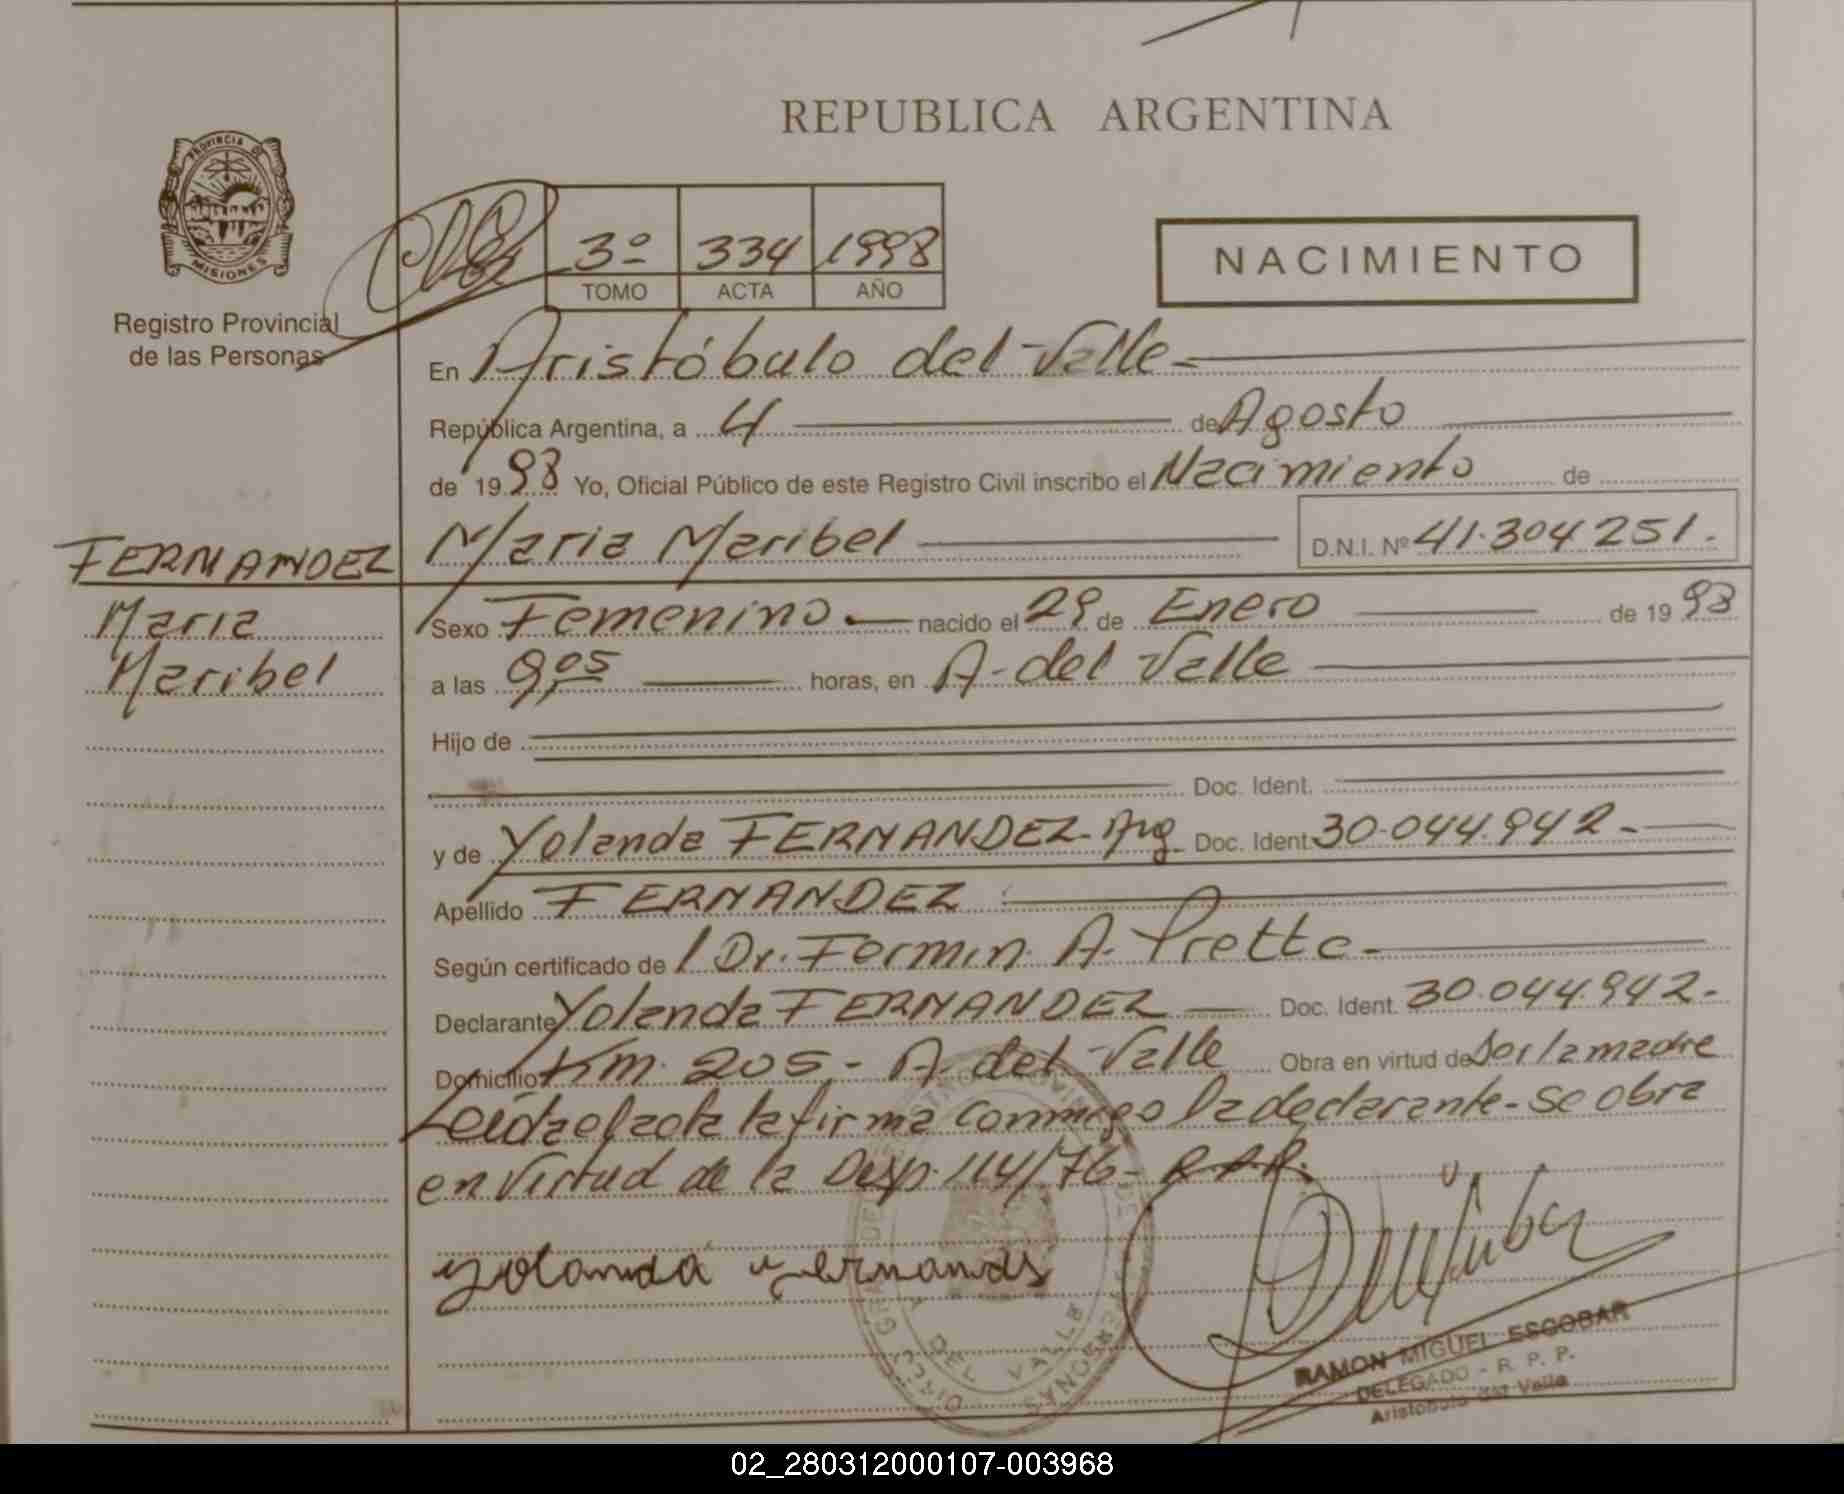 REPUBLICA ARGENTINA
PROVINCIA DE
MISIONES
Registro Provincial
de las Personas
3º 334 1998
TOMO ACTA AÑO
NACIMIENTO
En Aristóbulo del Valle -
República Argentina, a 4 de Agosto
de 1998 Yo, Oficial Público de este Registro Civil inscribo el Nacimiento de
FERNANDEZ
Maria
Maribel
Maria Maribel D.N.I. Nº 41.304251.
Sexo Femenino nacido el 29 de Enero de 1998
a las 9,05 horas, en A. del Valle
Hijo de
Doc. Ident.
y de Yolanda FERNANDEZ - Arg. Doc. Ident. 30.044.942 -
Apellido FERNANDEZ
Según certificado de Dr. Fermin A.
Declarante Yolanda FERNANDEZ Doc. Ident. 30.044.942 -
Domicilio Km. 205 - A. del Valle Obra en virtud de Ser la madre
Leida el acta la firma conmigo la declarante - se obra
en virtud de la Disp. 114/76 -
yolanda
RAMON MIGUEL ESCOBAR
DELEGADO - R. P. P.
Aristóbulo del Valle
DEL VALLE
02_280312000107-003968